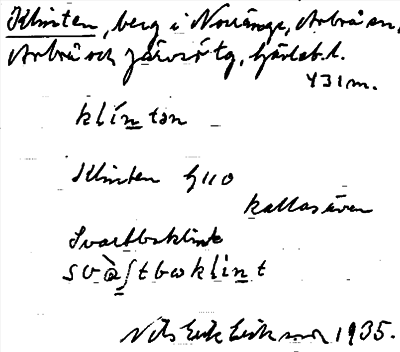 Klinten, berg i Norränge, Arbrå sn,
Arbrå och Järvsö tg, Gävleb. l.
431 m.
klíntən
Klinten G110
kallas även
Svartboklint
svàʃtboklint
Nils Erik Eriksson 1935.